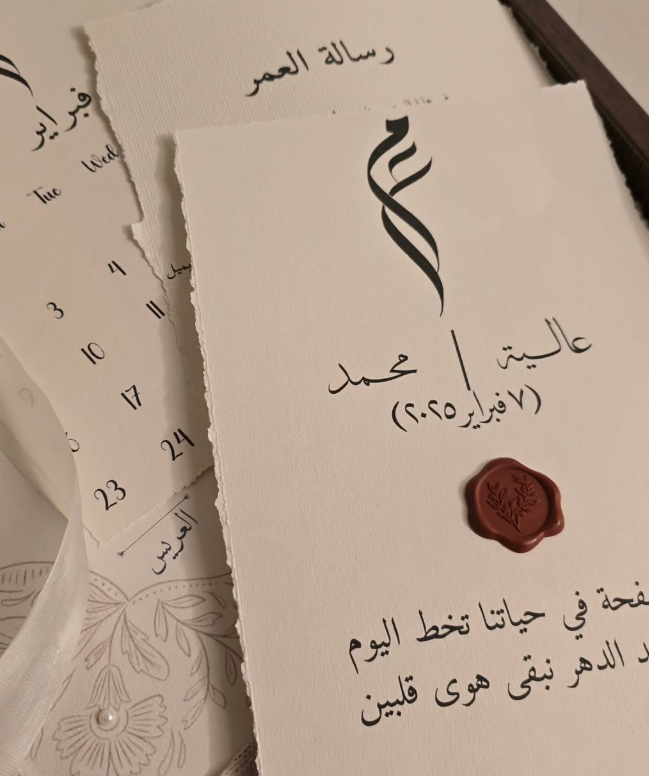 رسالة العمر
فبراير
Tue Wed
3 4
10 11
17
23 24
العريس
عالية | محمد
(٧ فبراير ٢٠٢٥)
في حياتنا تخط اليوم
الدهر نبقى هوى قلبين